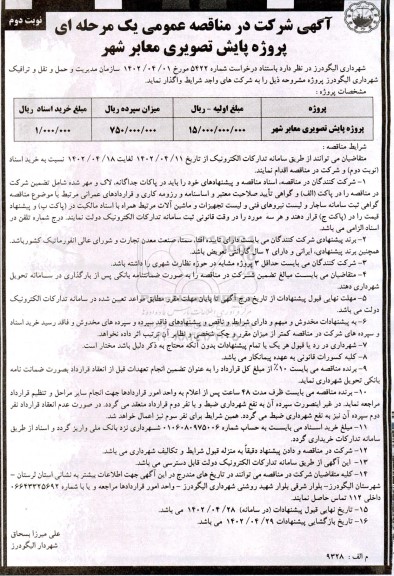 نوبت دوم
آگهی شرکت در مناقصه عمومی یک مرحله ای
پروژه پایش تصویری معابر شهر
شهرداری الیگودرز در نظر دارد باستناد درخواست شماره ۵۴۲۲ مورخ ۱۴۰۲/۰۴/۰۱ سازمان مدیریت و حمل و نقل و ترافیک
شهرداری الیگودرز پروژه مشروحه ذیل را به شرکت های واجد شرایط واگذار نماید.
مشخصات پروژه :
پروژه | مبلغ اولیه - ریال | میزان سپرده ریال | مبلغ خرید اسناد ریال
پروژه پایش تصویری معابر شهر | ۱۵/۰۰۰/۰۰۰/۰۰۰ | ۷۵۰/۰۰۰/۰۰۰ | ۱/۰۰۰/۰۰۰
شرایط مناقصه :
متقاضیان می توانند از طریق سامانه تدارکات الکترونیک از تاریخ ۱۴۰۲/۰۴/۱۱ لغایت ۱۴۰۲/۰۴/۱۸ نسبت به خرید اسناد
(نوبت دوم) و شرکت در مناقصه اقدام نمایند.
۱- شرکت کنندگان در مناقصه، اسناد مناقصه و پیشنهادهای خود را باید در پاکات جداگانه، لاک و مهر شده شامل تضمین شرکت
در مناقصه را در پاکت (الف) و گواهی تأیید صلاحیت معتبر و اساسنامه و رزومه کاری و قراردادهای عمرانی مرتبط با موضوع مناقصه
گواهی ثبت سامانه ساجار و لیست نیروهای فنی و لیست تجهیزات و ماشین آلات مرتبط همراه با اسناد مالکیت در (پاکت ب) و پیشنهاد
قیمت را در (پاکت ج) قرار دهند و هر سه مورد را در وقت قانونی ثبت سامانه تدارکات الکترونیک دولت نمایند. درج شماره تلفن در
اسناد الزامی می باشد.
۲- برند پیشنهادی شرکت کنندگان می بایست دارای تاییده افتا، سمتا، صنعت معدن تجارت و شورای عالی انفورماتیک کشور باشد.
همچنین برند پیشنهادی، ایرانی و دارای ۲ سال گارانتی تعویض باشد.
۳- شرکت کنندگان می بایست حداقل ۳ پروژه مشابه در حوزه نظارت شهری را داشته باشد.
۴- متقاضیان می بایست مبالغ تضمین شرکت در مناقصه را به صورت ضمانتنامه بانکی پس از بارگذاری در سامانه تحویل
شهرداری دهند.
۵- مهلت نهایی قبول پیشنهادات از تاریخ درج آگهی تا پایان مهلت مقرر مطابق مواعد تعیین شده در سامانه تدارکات الکترونیک
دولت می باشد.
۶- به پیشنهادات مخدوش و مبهم و دارای شرایط و ناقص و پیشنهادهای فاقد سپرده و سپرده های مخدوش و فاقد رسید خرید اسناد
و سپرده های شرکت در مناقصه کمتر از میزان مقرر و چک شخصی و نظایر آن ترتیب اثر داده نخواهد.
۷- شهرداری در رد یا قبول هر یک یا تمام پیشنهادات بدون آنکه محتاج به ذکر دلیل باشد مختار است.
۸- کلیه کسورات قانونی به عهده پیمانکار می باشد.
۹- برنده مناقصه می بایست ۱۰٪ از مبلغ کل قرارداد را به عنوان تضمین انجام تعهدات قبل از انعقاد قرارداد بصورت ضمانت نامه
بانکی تحویل شهرداری نماید.
۱۰- برنده مناقصه می بایست ظرف مدت ۴۸ ساعت پس از اعلام به واحد امور قراردادها جهت انجام سایر مراحل و تنظیم قرارداد
مراجعه نماید. در غیر اینصورت سپرده آن به نفع شهرداری ضبط و با نفر دوم قرارداد منعقد می گردد. در صورت عدم انعقاد قرارداد نفر
دوم سپرده آن نیز به نفع شهرداری ضبط می گردد. همین شرایط برای نفر سوم نیز اعمال خواهد شد.
۱۱- مبلغ خرید اسناد می بایست به حساب شماره ۰۱۰۶۰۸۰۹۷۵۰۰۶ شهرداری نزد بانک ملی واریز گردد و اسناد از طریق
سامانه تدارکات خریداری گردد.
۱۲- شرکت در مناقصه و دادن پیشنهاد دقیقاً به منزله قبول شرایط و تکالیف شهرداری می باشد.
۱۳- این آگهی از طریق سامانه تدارکات الکترونیک دولت قابل دسترسی می باشد.
۱۴- کلیه متقاضیان شرکت در مناقصه می توانند در تاریخ های مندرج در این آگهی جهت اطلاعات بیشتر به نشانی استان لرستان -
شهرستان الیگودرز- بلوار شرقی بلوار شهید روشنی شهرداری الیگودرز - واحد امور قراردادها مراجعه و یا با شماره ۰۶۶۴۳۳۲۵۶۹۲
داخلی ۱۱۲ تماس حاصل نمایند.
۱۵- تاریخ نهایی قبول پیشنهادات (در سامانه) ۱۴۰۲/۰۴/۲۸ می باشد.
۱۶- تاریخ بازگشایی پیشنهادات ۱۴۰۲/۰۴/۲۹ می باشد.
علی میرزا یسحاق
شهردار الیگودرز
م الف : ۹۳۲۸